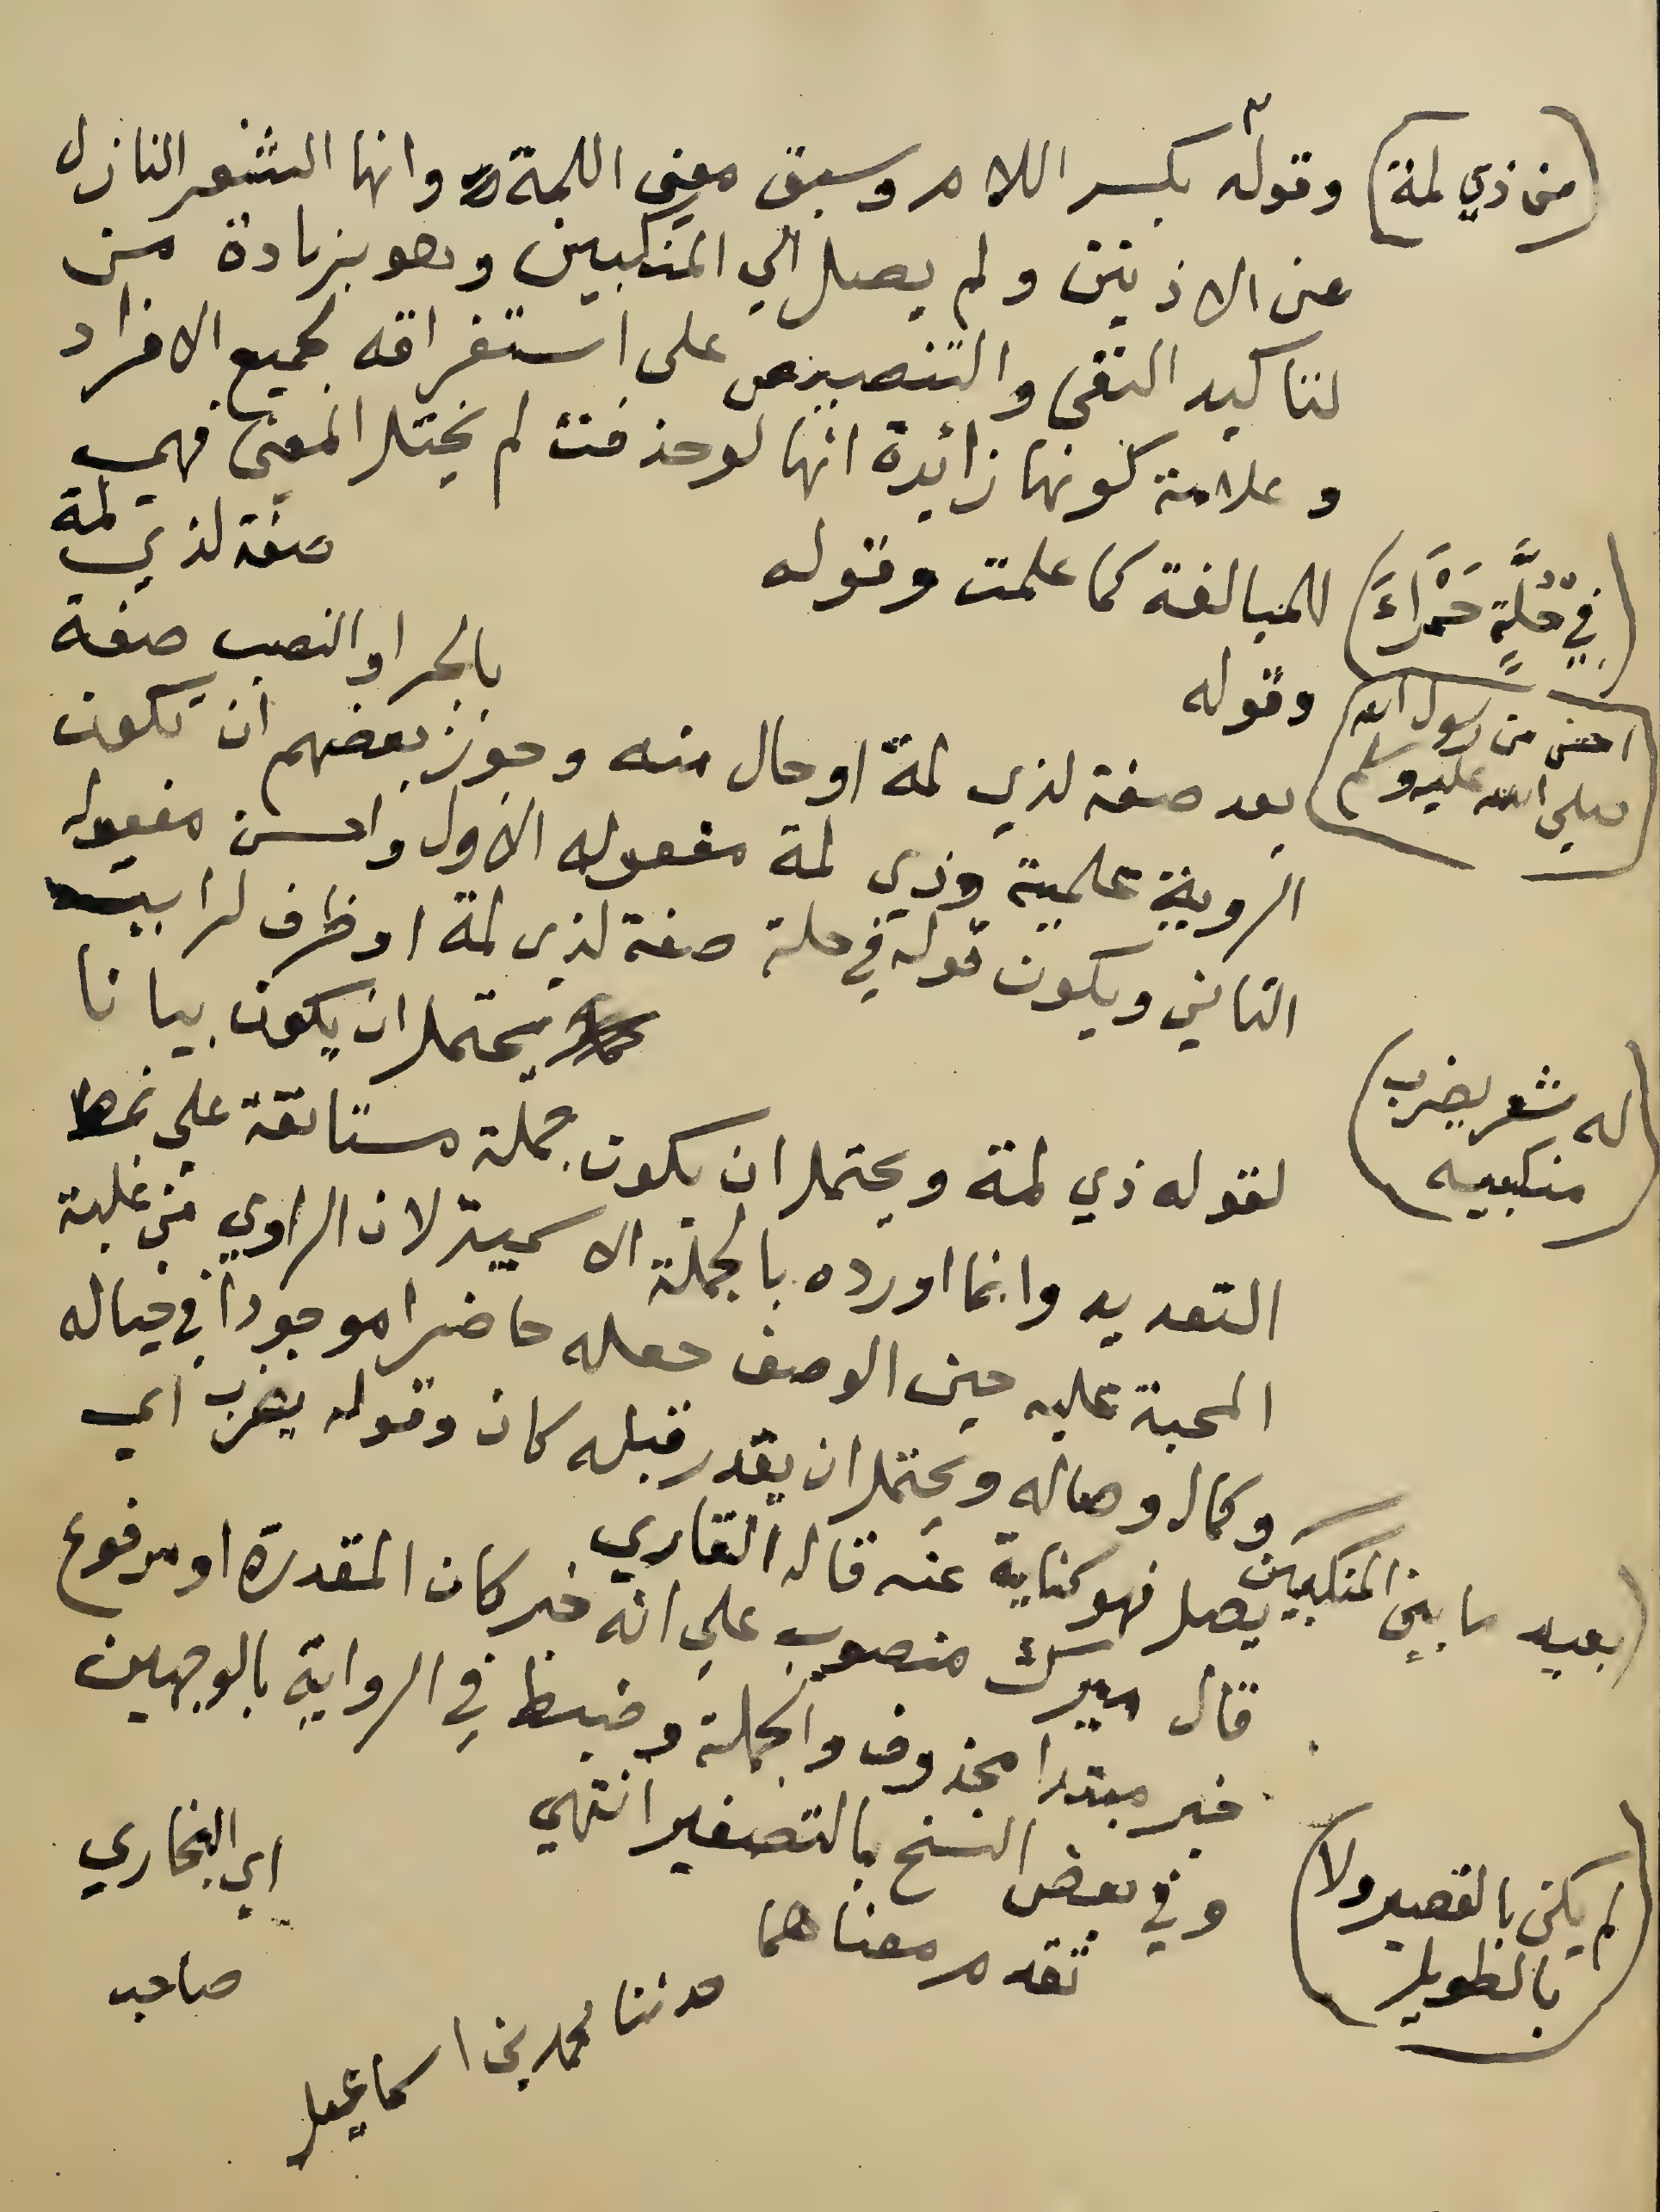 (من ذي لمة) وقوله بكسر اللام وسبق معنى اللمة وانها الشعر النازل
عن الاذنين ولم يصل الي المنكبين وهو بزيادة من
لتاكيد النفي والتنصيص على استغراقه لجميع الافراد
وعلامة كونها زائدة انها لو حذفت لم يختل المعنى فهي
(في حُلَّةٍ حَمْرَاءَ) للمبالغة كما علمت وقوله صفة لذي لمة
(احسن من رسول الله وقوله بالجر او النصب صفة
صلي الله عليه وسلم) بعد صفة لذي لمة او حال منه وجوز بعضهم ان تكون
الروية علمية وذي لمة مفعوله الاول واحسن مفعوله
الثاني ويكون قوله في حلة صفة لذي لمة او ظرف لرايت
(له شعر يضرب يحتمل ان يكون بيانا
منكبيه) لقوله ذي لمة ويحتمل ان يكون جملة مستانفة على نمط
التعديد وانما اورده بالجملة الاسمية لان الراوي من غلبة
المحبة عليه حين الوصف جعله حاضرا موجودا في خياله
وكمال وصاله ويحتمل ان يقدر قبله كان وقوله يضرب اي
(بعيد ما بين المنكبين يصل فهو كناية عنه قاله القاري
قال ميرك منصوب على انه خبر كان المقدرة او مرفوع
خبر مبتدا محذوف والجملة وضبط في الرواية بالوجهين
وفي بعض النسخ بالتصغير انتهي
(لم يكن بالقصير ولا
بالطويل) تقدم معناهما
حدثنا محمد بن اسماعيل
اي البخاري
صاحب